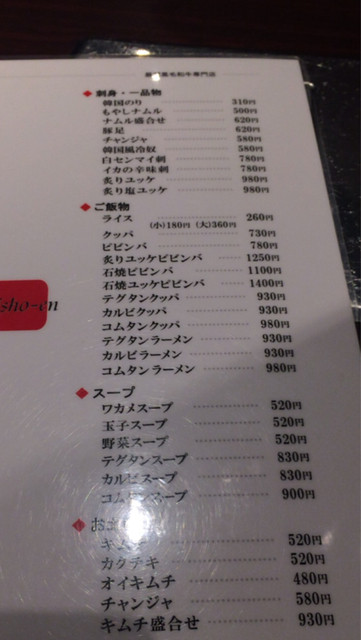 黒毛和牛専門店
◆刺身・一品物
韓国のり 310円
もやしナムル 500円
ナムル盛合せ 620円
豚足 620円
チャンジャ 580円
韓国風冷奴 580円
白センマイ刺 780円
イカの辛味刺 780円
炙りユッケ 980円
炙り塩ユッケ 980円
◆ご飯物
ライス 260円
(小)180円 (大)360円
クッパ 730円
ビビンバ 780円
炙りユッケビビンバ 1250円
石焼ビビンバ 1100円
石焼ユッケビビンバ 1400円
テグタンクッパ 930円
カルビクッパ 930円
コムタンクッパ 980円
テグタンラーメン 930円
カルビラーメン 930円
コムタンラーメン 980円
sho-en
◆スープ
ワカメスープ 520円
玉子スープ 520円
野菜スープ 520円
テグタンスープ 830円
カルビスープ 830円
コムタンスープ 900円
◆お
キムチ 520円
カクテキ 520円
オイキムチ 480円
チャンジャ 580円
キムチ盛合せ 930円